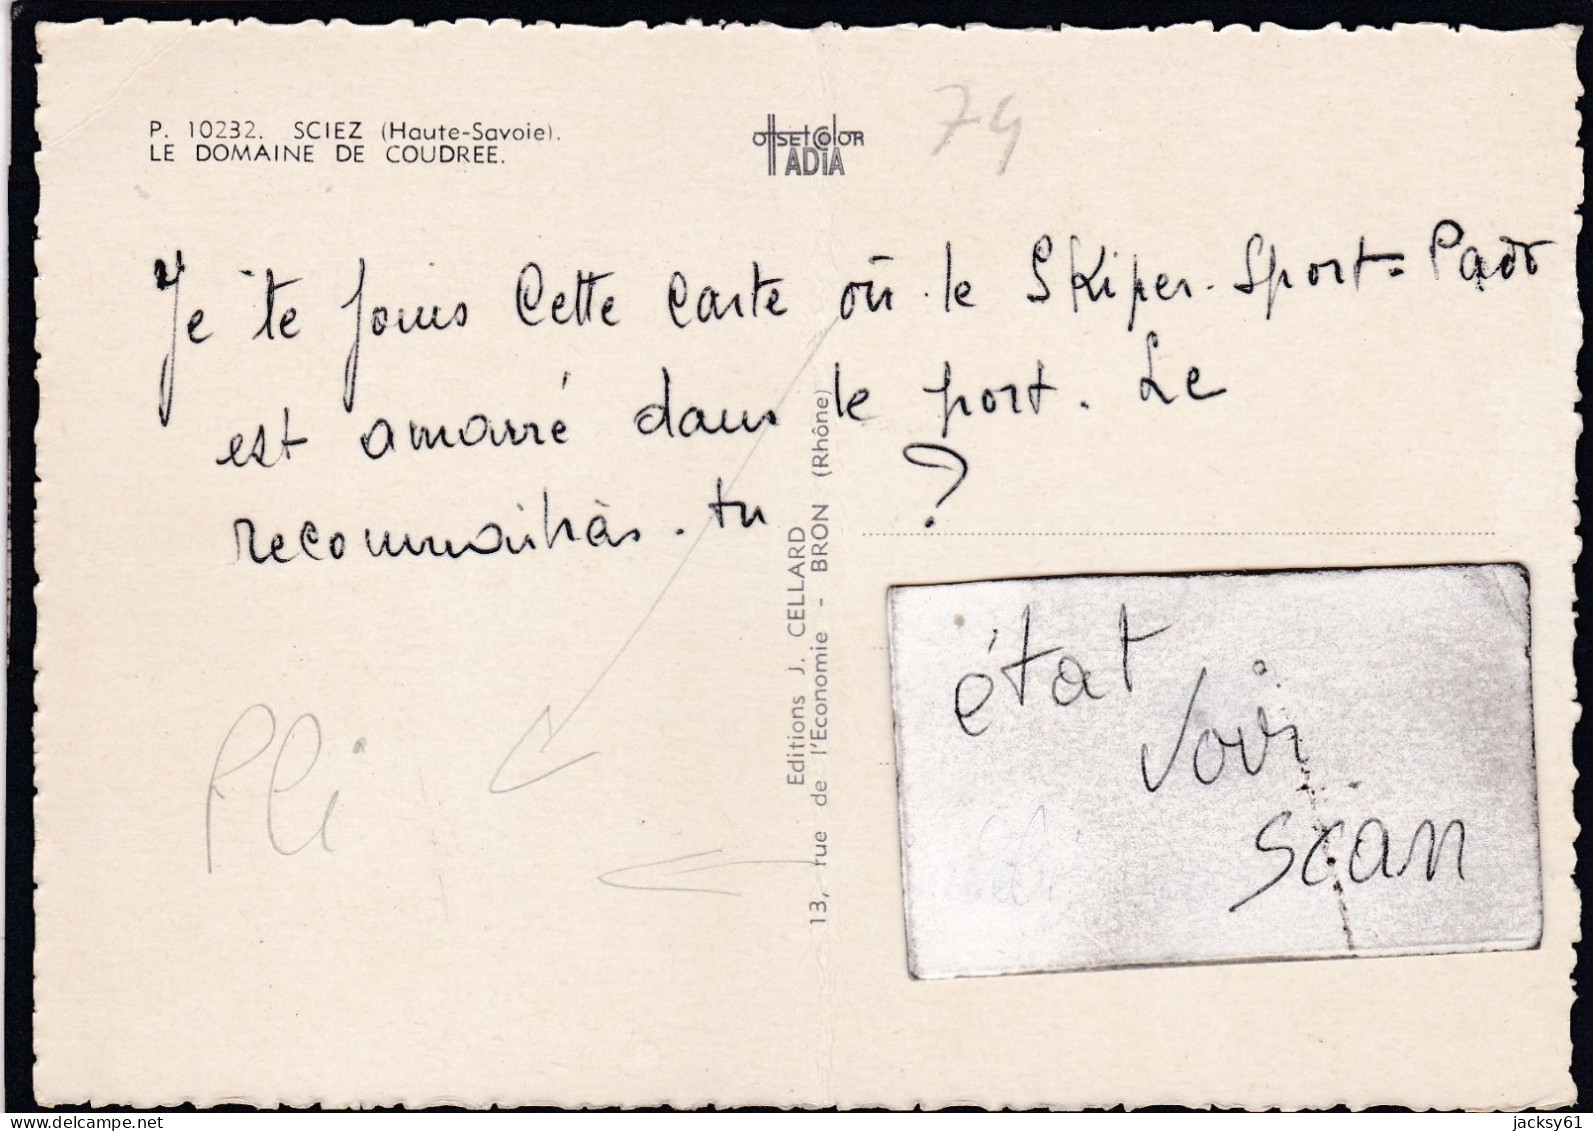 P. 10232. SCIEZ (Haute-Savoie).
LE DOMAINE DE COUDREE.
OffSEtColoR
ADIA
74
Je te joins cette carte où le Skiper-Sport-
est amarré dans le port. Le
reconnaîtras-tu ?
Editions J. CELLARD
13, rue de l'Economie - BRON (Rhône)
Pli
état
voir
scan
jacksy61